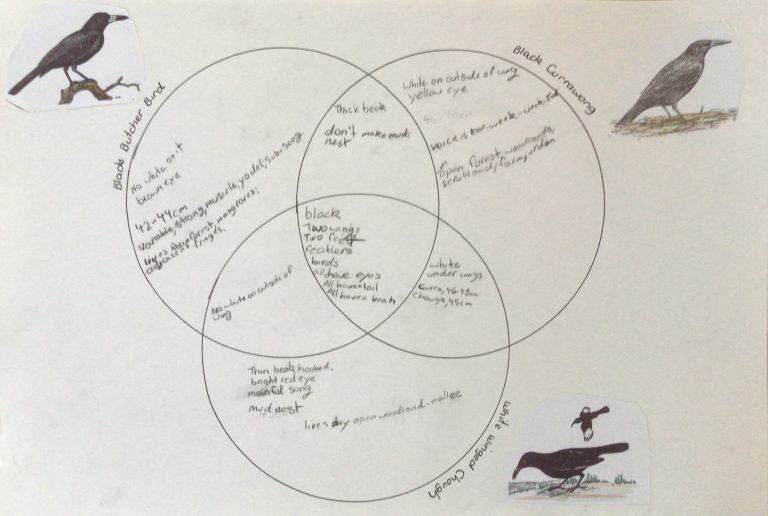 Black Butcher Bird
Black Currawong
white winged Chough
No white on it
brown eye
42-44cm
Variable, strong, musicle, yodel, sub-song
lives Rainforest, mangroves,
adjacent fringes.
Thick beak
don't make mud
nest
white on outside of wing
yellow eye
46-48cm
voice is kar-week-week-kar
open forest, woodlands,
scrub and farm, urban
black
Two wings
Two feet
feathers
birds
all have eyes
All have tail
All have a beak
No white on outside of
wing
white
under wings
Curra, 46-48cm
Chough, 45cm
Thin beak hooked,
bright red eye
mournful song
mud nest
lives dry open woodland-mallee